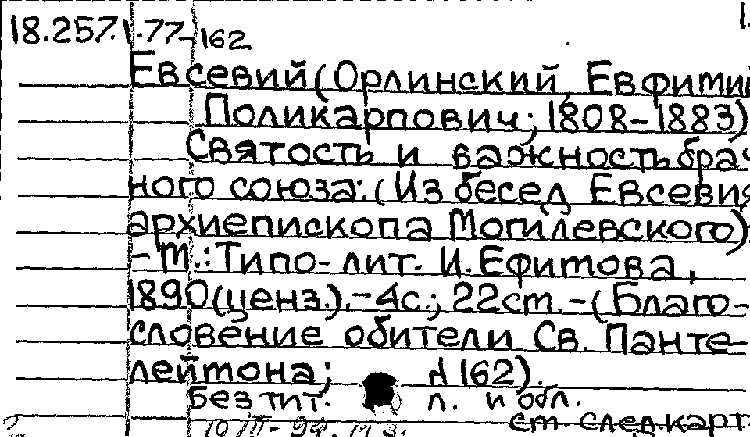 18.257.1.77-162
Евсевий (Орлинский, Евфимий
Поликарпович; 1808-1883)
Святость и важность брач-
ного союза: (Из бесед Евсевия
архиепископа Могилевского)
- М.: Типо-лит. И. Ефимова,
1890 (ценз.). - 4с.; 22см. - (Благо-
словение обители Св. Панте-
леймона; № 162).
Без тит. л. и обл.
см. след. карт